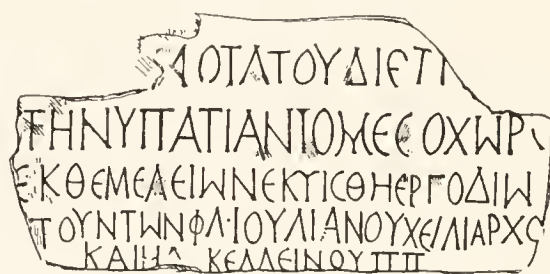 ΛΟΤΑΤΟΥΔΙΕΤΙ
ΤΗΝΥΠΑΤΙΑΝΙΟΜΕϹΟΧΩΡΙ
ΕΚΘΕΜΕΛΕΙΩΝΕΚΤΙϹΘΗΕΡΓΟΔΙΩ
ΤΟΥΝΤΩΝΦΛ·ΙΟΥΛΙΑΝΟΥΧΕΙΛΙΑΡΧΟϹ
ΚΑΙΜ ΚΕΛΛΕΙΝΟΥΠΠ